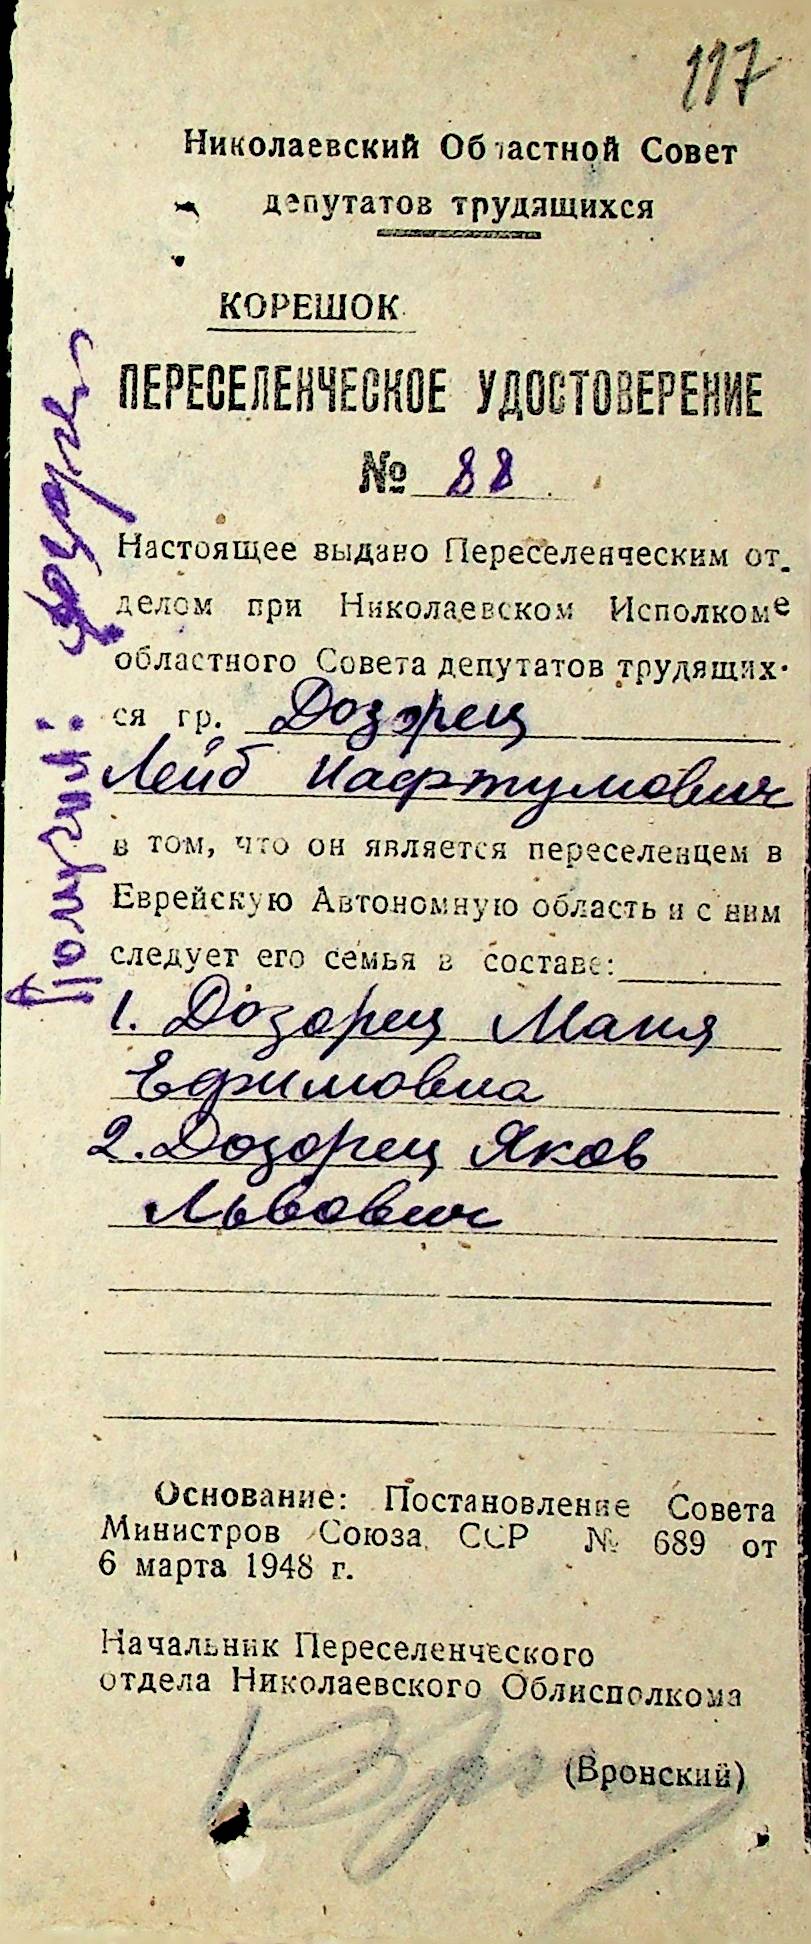 117
Николаевский Областной Совет
депутатов трудящихся
КОРЕШОК
ПЕРЕСЕЛЕНЧЕСКОЕ УДОСТОВЕРЕНИЕ
№ 88
Настоящее выдано Переселенческим от-
делом при Николаевском Исполкоме
областного Совета депутатов трудящих-
ся гр. Дозорец
Лейб Нафтумович
в том, что он является переселенцем в
Еврейскую Автономную область и с ним
следует его семья в составе:
1. Дозорец Маня
Ефимовна
2. Дозорец Яков
Львович
Основание: Постановление Совета
Министров Союза ССР № 689 от
6 марта 1948 г.
Начальник Переселенческого
отдела Николаевского Облисполкома
(Вронский)
Получил: